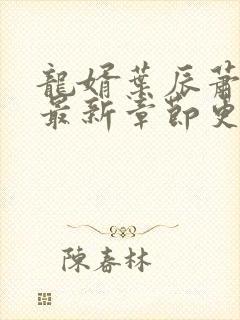 龍婿葉辰蕭
最新章節更
陳春林